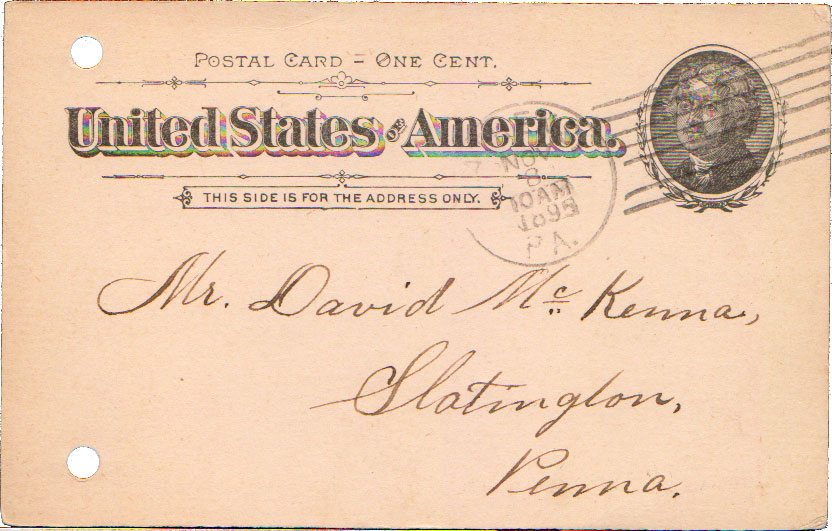 POSTAL CARD – ONE CENT.
United States OF America.
THIS SIDE IS FOR THE ADDRESS ONLY.
NOV
8
10 AM
1895
PA.
Mr. David Mc Kenna,
Slatington,
Penna.